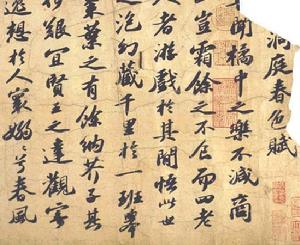 洞庭春色賦
聞橘中之樂不減商
山豈霜餘之不食而四老
人者游戲於其間悟此世
之泡幻藏千里於一班舉
棗葉之有餘納芥子其
何艱宜賢王之達觀寄
逸想於人寰嫋嫋兮春風